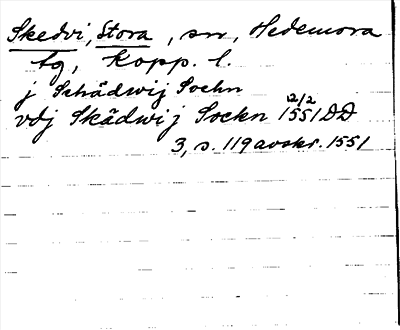 Skedvi, Stora, sn, Hedemora
tg, Kopp. l.
j Schädwij Sochn
vdj Skädwij Sockn 12/2 1551 DD
3, s. 119 avskr. 1551